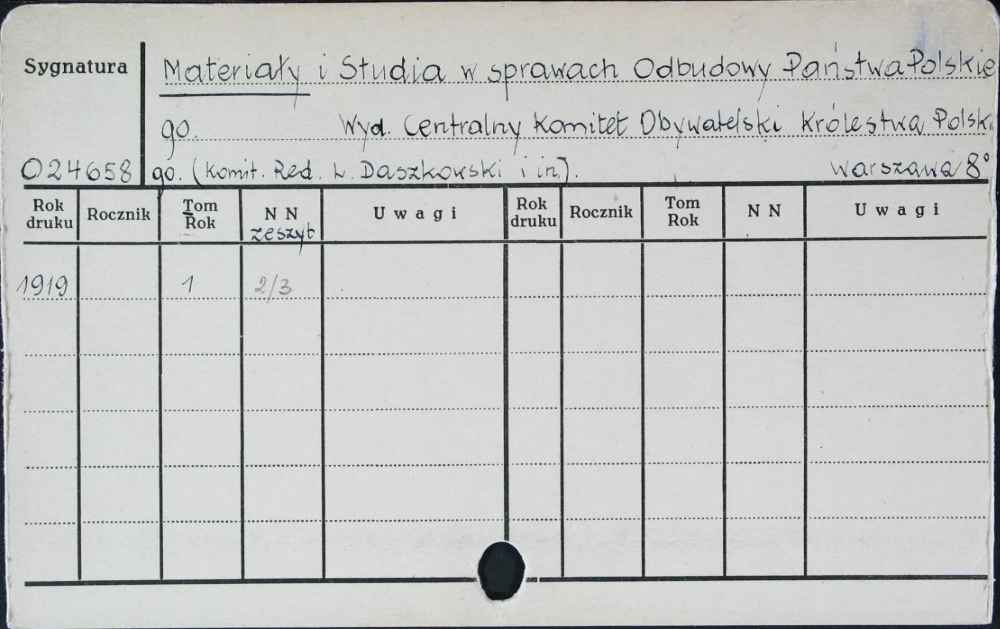 Sygnatura
Materiały i Studia w sprawach Odbudowy Państwa Polskie
go. Wyd. Centralny Komitet Obywatelski Królestwa Polski
024658 go. (Komit. Red. L. Daszkowski i in.). Warszawa 8°
Rok druku Rocznik Tom Rok N N zeszyt U w a g i Rok druku Rocznik Tom Rok N N U w a g i
1919 1 2/3